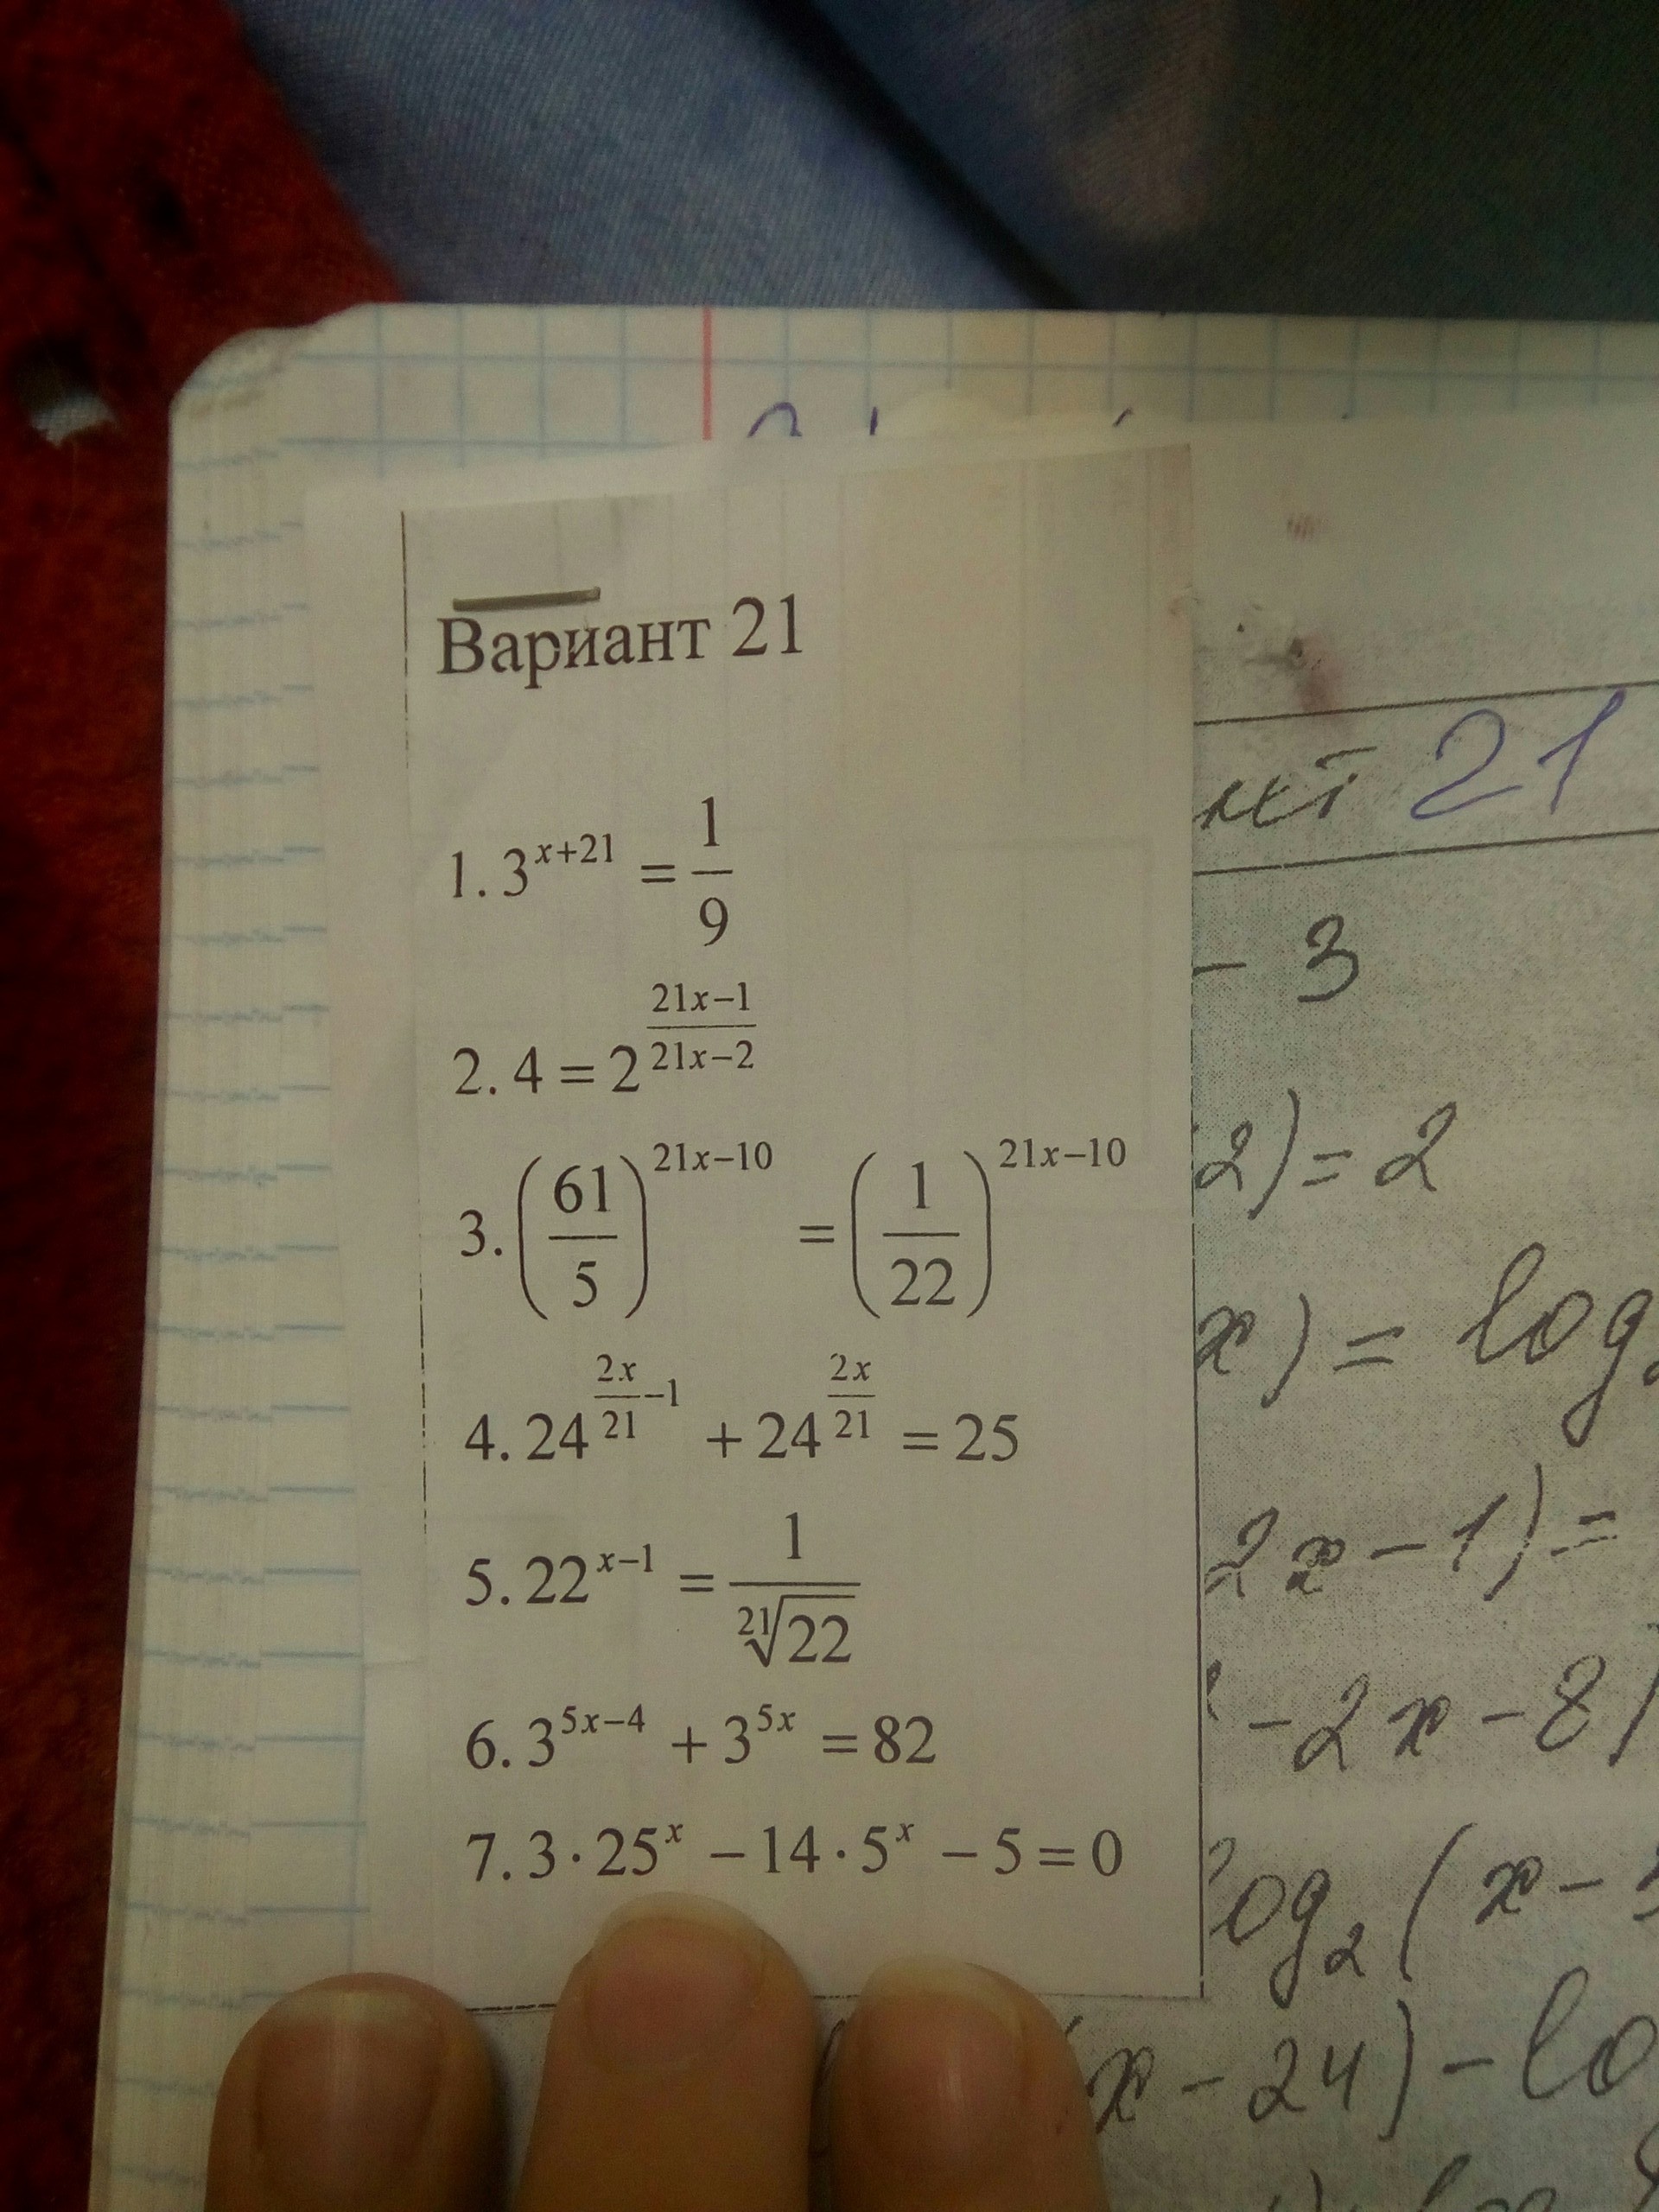 Вариант 21
21
1. 3^{x+21} = \frac{1}{9}
- 3
2. 4 = 2^{\frac{21x-1}{21x-2}}
2) = 2
3. \left(\frac{61}{5}\right)^{21x-10} = \left(\frac{1}{22}\right)^{21x-10}
x) = log
4. 24^{\frac{2x}{21}-1} + 24^{\frac{2x}{21}} = 25
2x - 1) =
5. 22^{x-1} = \frac{1}{\sqrt[21]{22}}
- 2x - 8)
6. 3^{5x-4} + 3^{5x} = 82
7. 3 · 25^x - 14 · 5^x - 5 = 0
log_2 (x -
x - 24) - lo